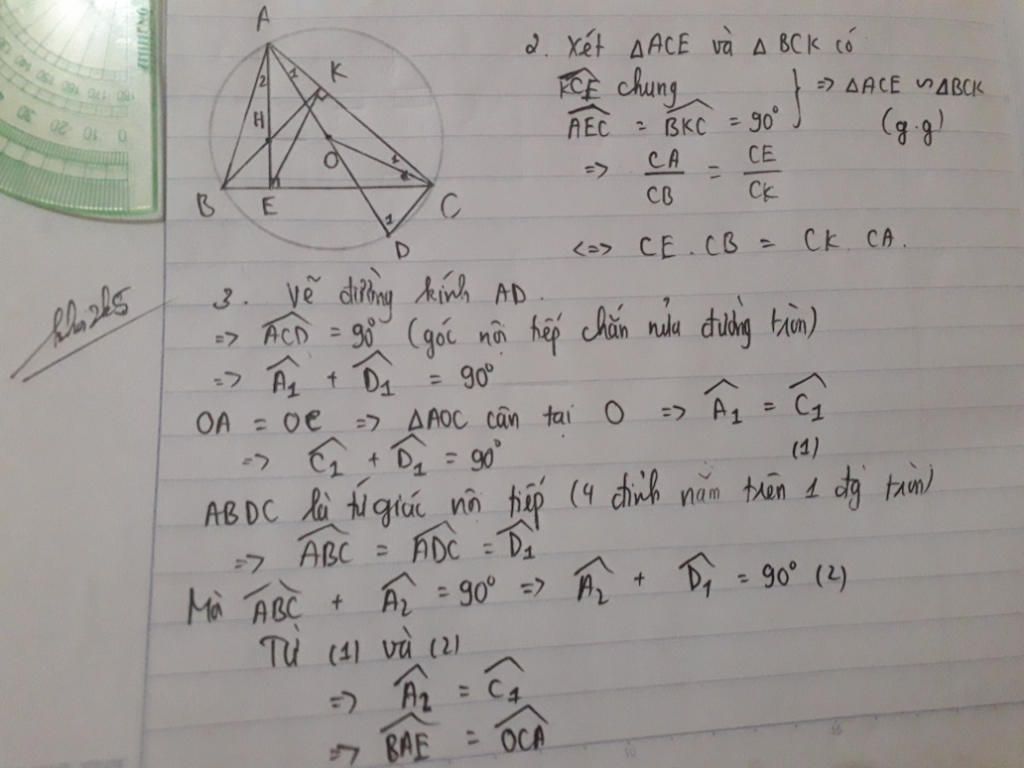 A
2
1
K
H
O
1
B
E
C
1
D
2. Xét ΔACE và Δ BCK có
KCE chung
AEC = BKC = 90°
=> ΔACE ∽ ΔBCK
(g.g)
=> CA/CB = CE/CK
<=> CE . CB = CK . CA.
3. Vẽ đường kính AD.
=> ACD = 90° (góc nội tiếp chắn nửa đường tròn)
=> A1 + D1 = 90°
OA = OC => ΔAOC cân tại O => A1 = C1
=> C1 + D1 = 90° (1)
ABDC là tứ giác nội tiếp (4 đỉnh nằm trên 1 đg tròn)
=> ABC = ADC = D1
Mà ABC + A2 = 90° => A2 + D1 = 90° (2)
Từ (1) và (2)
=> A2 = C1
=> BAE = OCA